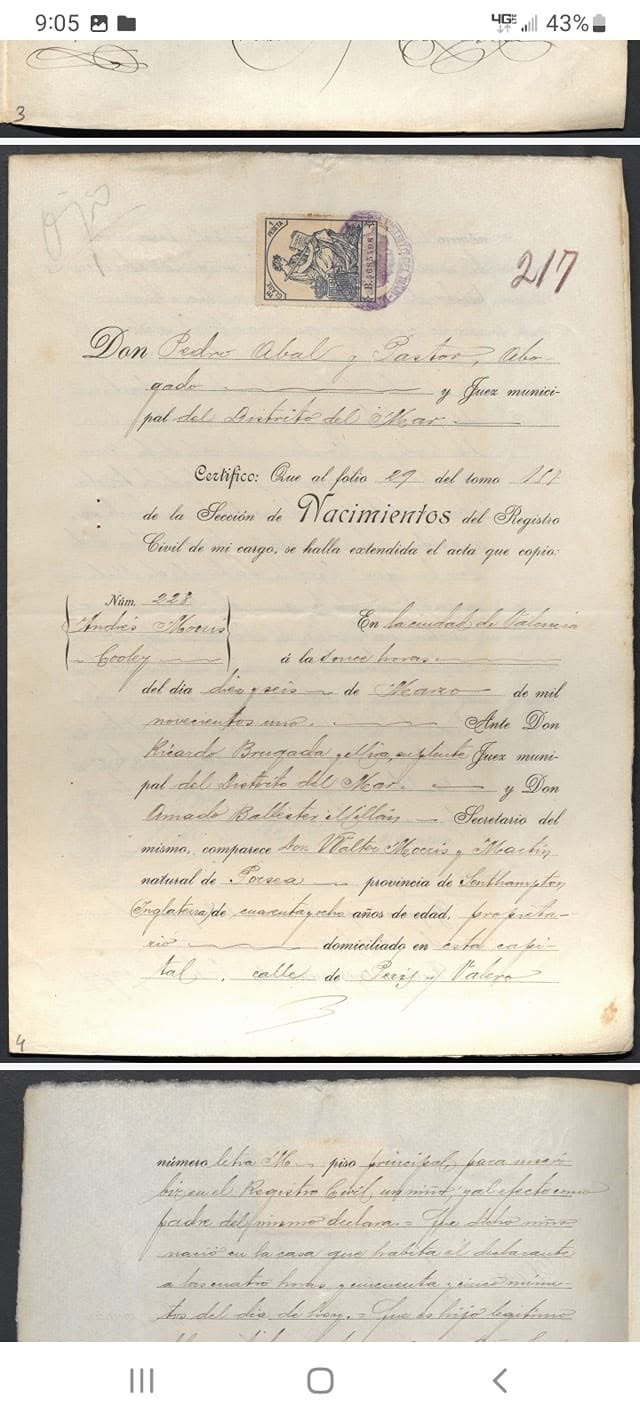 9:05
4GE 43%
3
Ojo
1 PESETA
B.4685498
217
Don Pedro Abal y Pastor, Abo-
gado y Juez munici-
pal del Distrito del Mar.
Certifico: Que al folio 29 del tomo
de la Sección de Nacimientos del Registro
Civil de mi cargo, se halla extendida el acta que copio:
Núm. 228
Andrés Morris
Cooley
En la ciudad de Valencia
á la s once horas
del día diez y seis de Marzo de mil
novecientos uno. Ante Don
Ricardo Brugada y Mia, suplente Juez muni-
pal del Distrito del Mar. y Don
Amado Ballester Millán Secretario del
mismo, comparece Don Walter Morris y Martín,
natural de provincia de Southampton
(Inglaterra) de cuarenta y ocho años de edad, propieta-
rio domiciliado en esta capi-
tal, calle de Peris y Valero
4
número letra M piso principal, para inscri-
bir en el Registro Civil, un niño, y al efecto como
padre del mismo declara.= Que dicho niño
nació en la casa que habita el declarante
a las cuatro horas y cincuenta y cinco minu-
tos del día de hoy.= Que es hijo legítimo